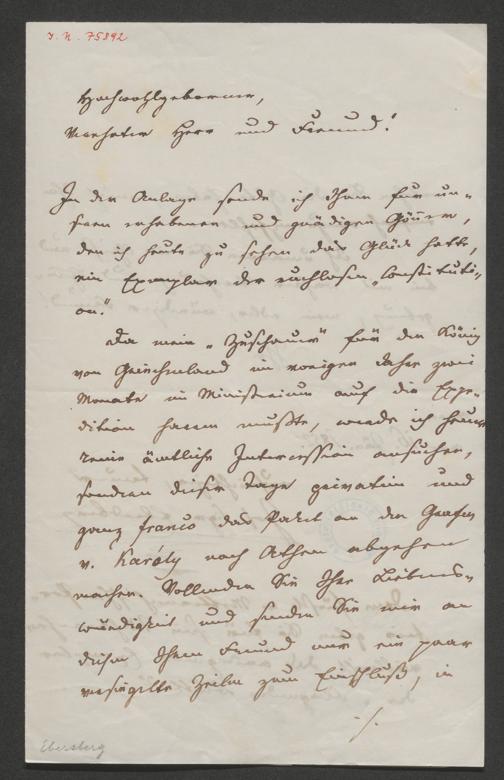 I. N. 75892
Hochwohlgeborner,
Verehrter Herr und Freund!
In der Anlage sende ich Ihnen für un-
seren erhabenen und gnädigen Gönner,
den ich heute zu sehen das Glück hatte,
ein Exemplar der ruchlosen „Constituti-
on."
Da mein „Zuschauer" für den König
von Griechenland im vorigen Jahre zwei
Monate im Ministerium auf die Expe-
dition harren mußte, werde ich heuer
keine ämtliche Intercession ansuchen,
sondern dieser Tage privatim und
ganz franco das Paket an den Grafen
v. Karóly nach Athen abgehen
machen. Vollenden Sie Ihre Liebens-
würdigkeit und senden Sie mir an
diesen Ihren Freund nur ein paar
versiegelte Zeilen zum Einschluß, in
./.
Ebersberg